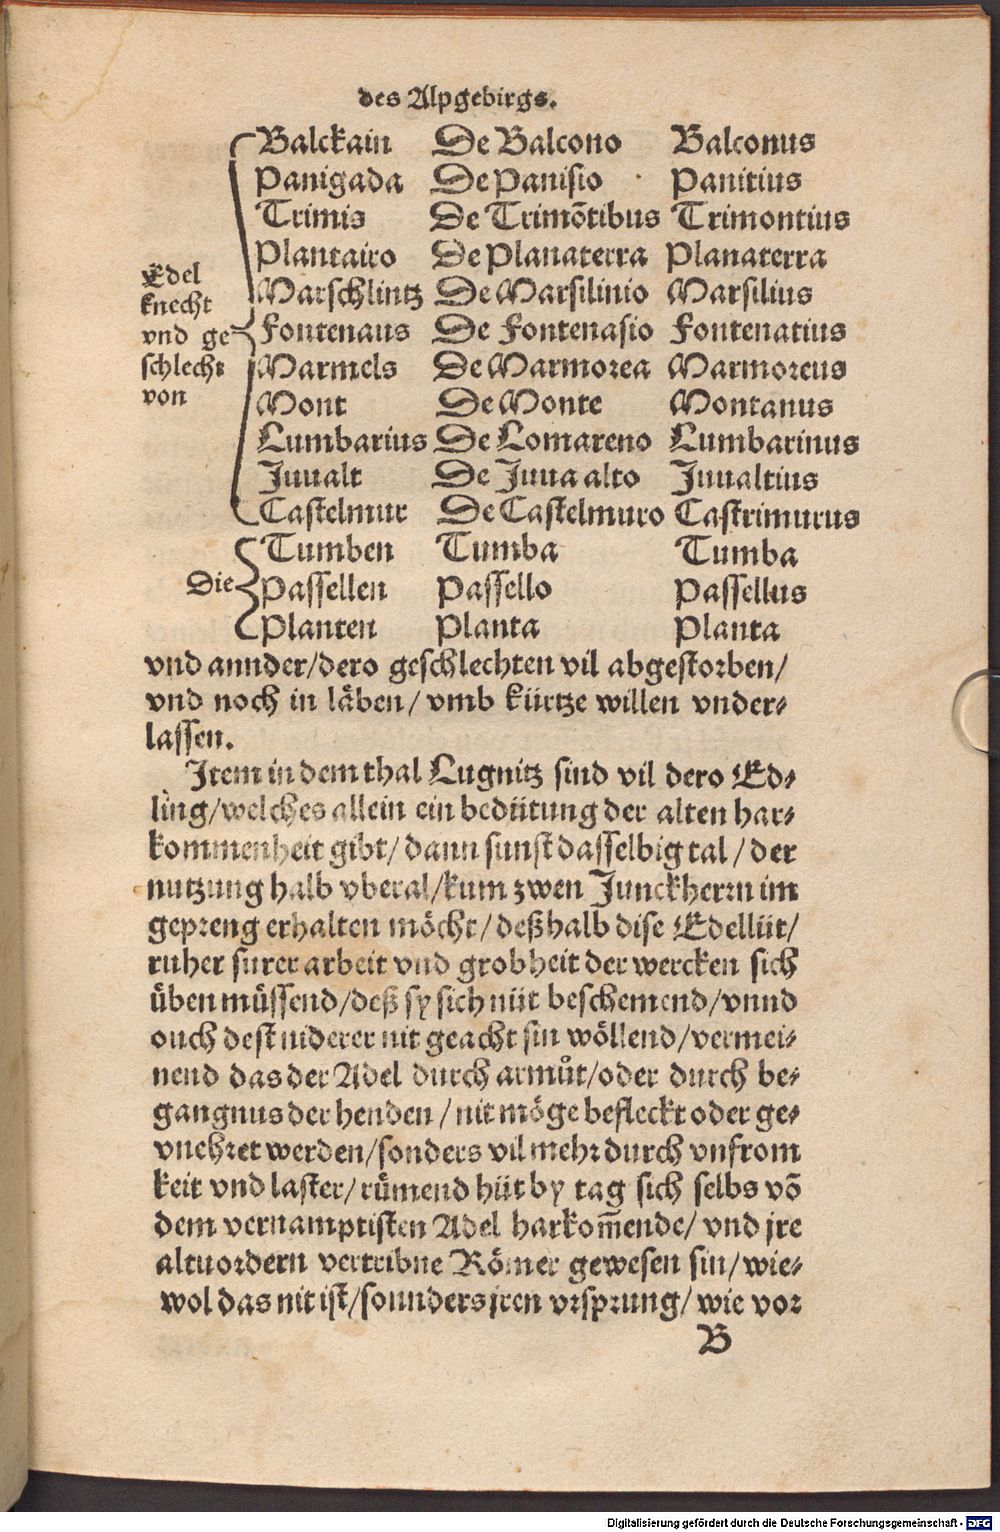 des Alpgebirgs.
Balckain De Balcono Balconus
Panigada De Panisio Panitius
Trimis De Trimõtibus Trimontius
Plantairo De Planaterra Planaterra
Edel
Marschlintz De Marsilinio Marsilius
knecht
vnd ge Fontenaus De Fontenasio Fontenatius
schlecht Marmels De Marmorea Marmoreus
von Mont De Monte Montanus
Lumbarius De Lomareno Lumbarinus
Juualt De Juua alto Juualtius
Castelmur De Castelmuro Castrimurus
Tumben Tumba Tumba
Die Passellen Passello Passellus
Planten Planta Planta
vnd annder/dero geschlechten vil abgestorben/
vnd noch in läben/ vmb kürtze willen vnder⸗
lassen.
Item in dem thal Lugnitz sind vil dero Ed⸗
ling/welches allein ein bedütung der alten har⸗
kommenheit gibt/ dann sunst dasselbig tal / der
nutzung halb vberal/kum zwen Junckherrn im
gepreng erhalten möcht/ deßhalb dise Edellüt/
ruher surer arbeit vnd grobheit der wercken sich
üben müssend/deß sy sich nüt beschemend/vnnd
ouch dest niderer nit geacht sin wöllend/vermei⸗
nend das der Adel durch armůt/oder durch be⸗
gangnus der henden / nit möge befleckt oder ge⸗
vnehret werden/sonders vil mehr durch vnfrom
keit vnd laster/ rümend hüt by tag sich selbs võ
dem vernamptisten Adel harkom̃ende/ vnd jre
altuordern vertribne Römer gewesen sin/ wie⸗
wol das nit ist/sonnders jren vrsprung/ wie vor
B
Digitalisierung gefördert durch die Deutsche Forschungsgemeinschaft - DFG